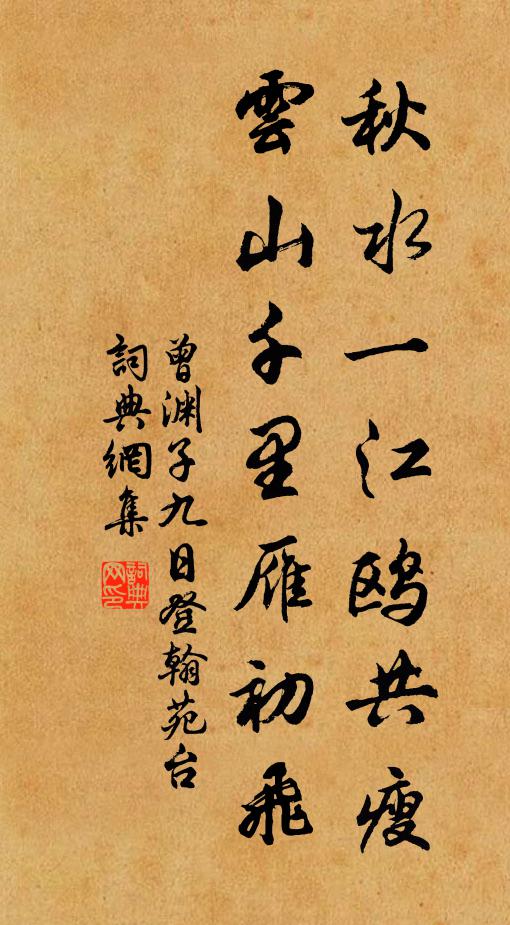 秋水一江鸥共瘦
雲山千里雁初飛
曾渊子九日登翰苑台
詞典網集
詞典网印